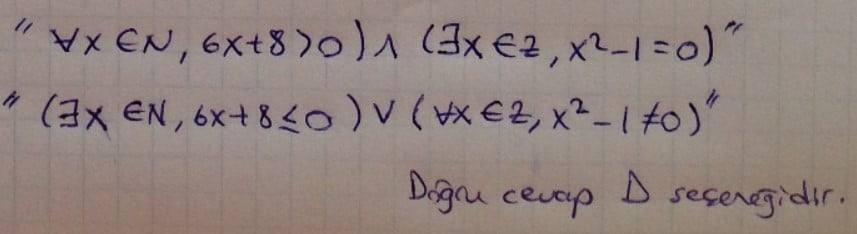 "∀x ∈ N, 6x+8>0) ∧ (∃x ∈ Z, x²-1=0)"
"(∃x ∈ N, 6x+8≤0) ∨ (∀x ∈ Z, x²-1≠0)"
Doğru cevap D seçeneğidir.